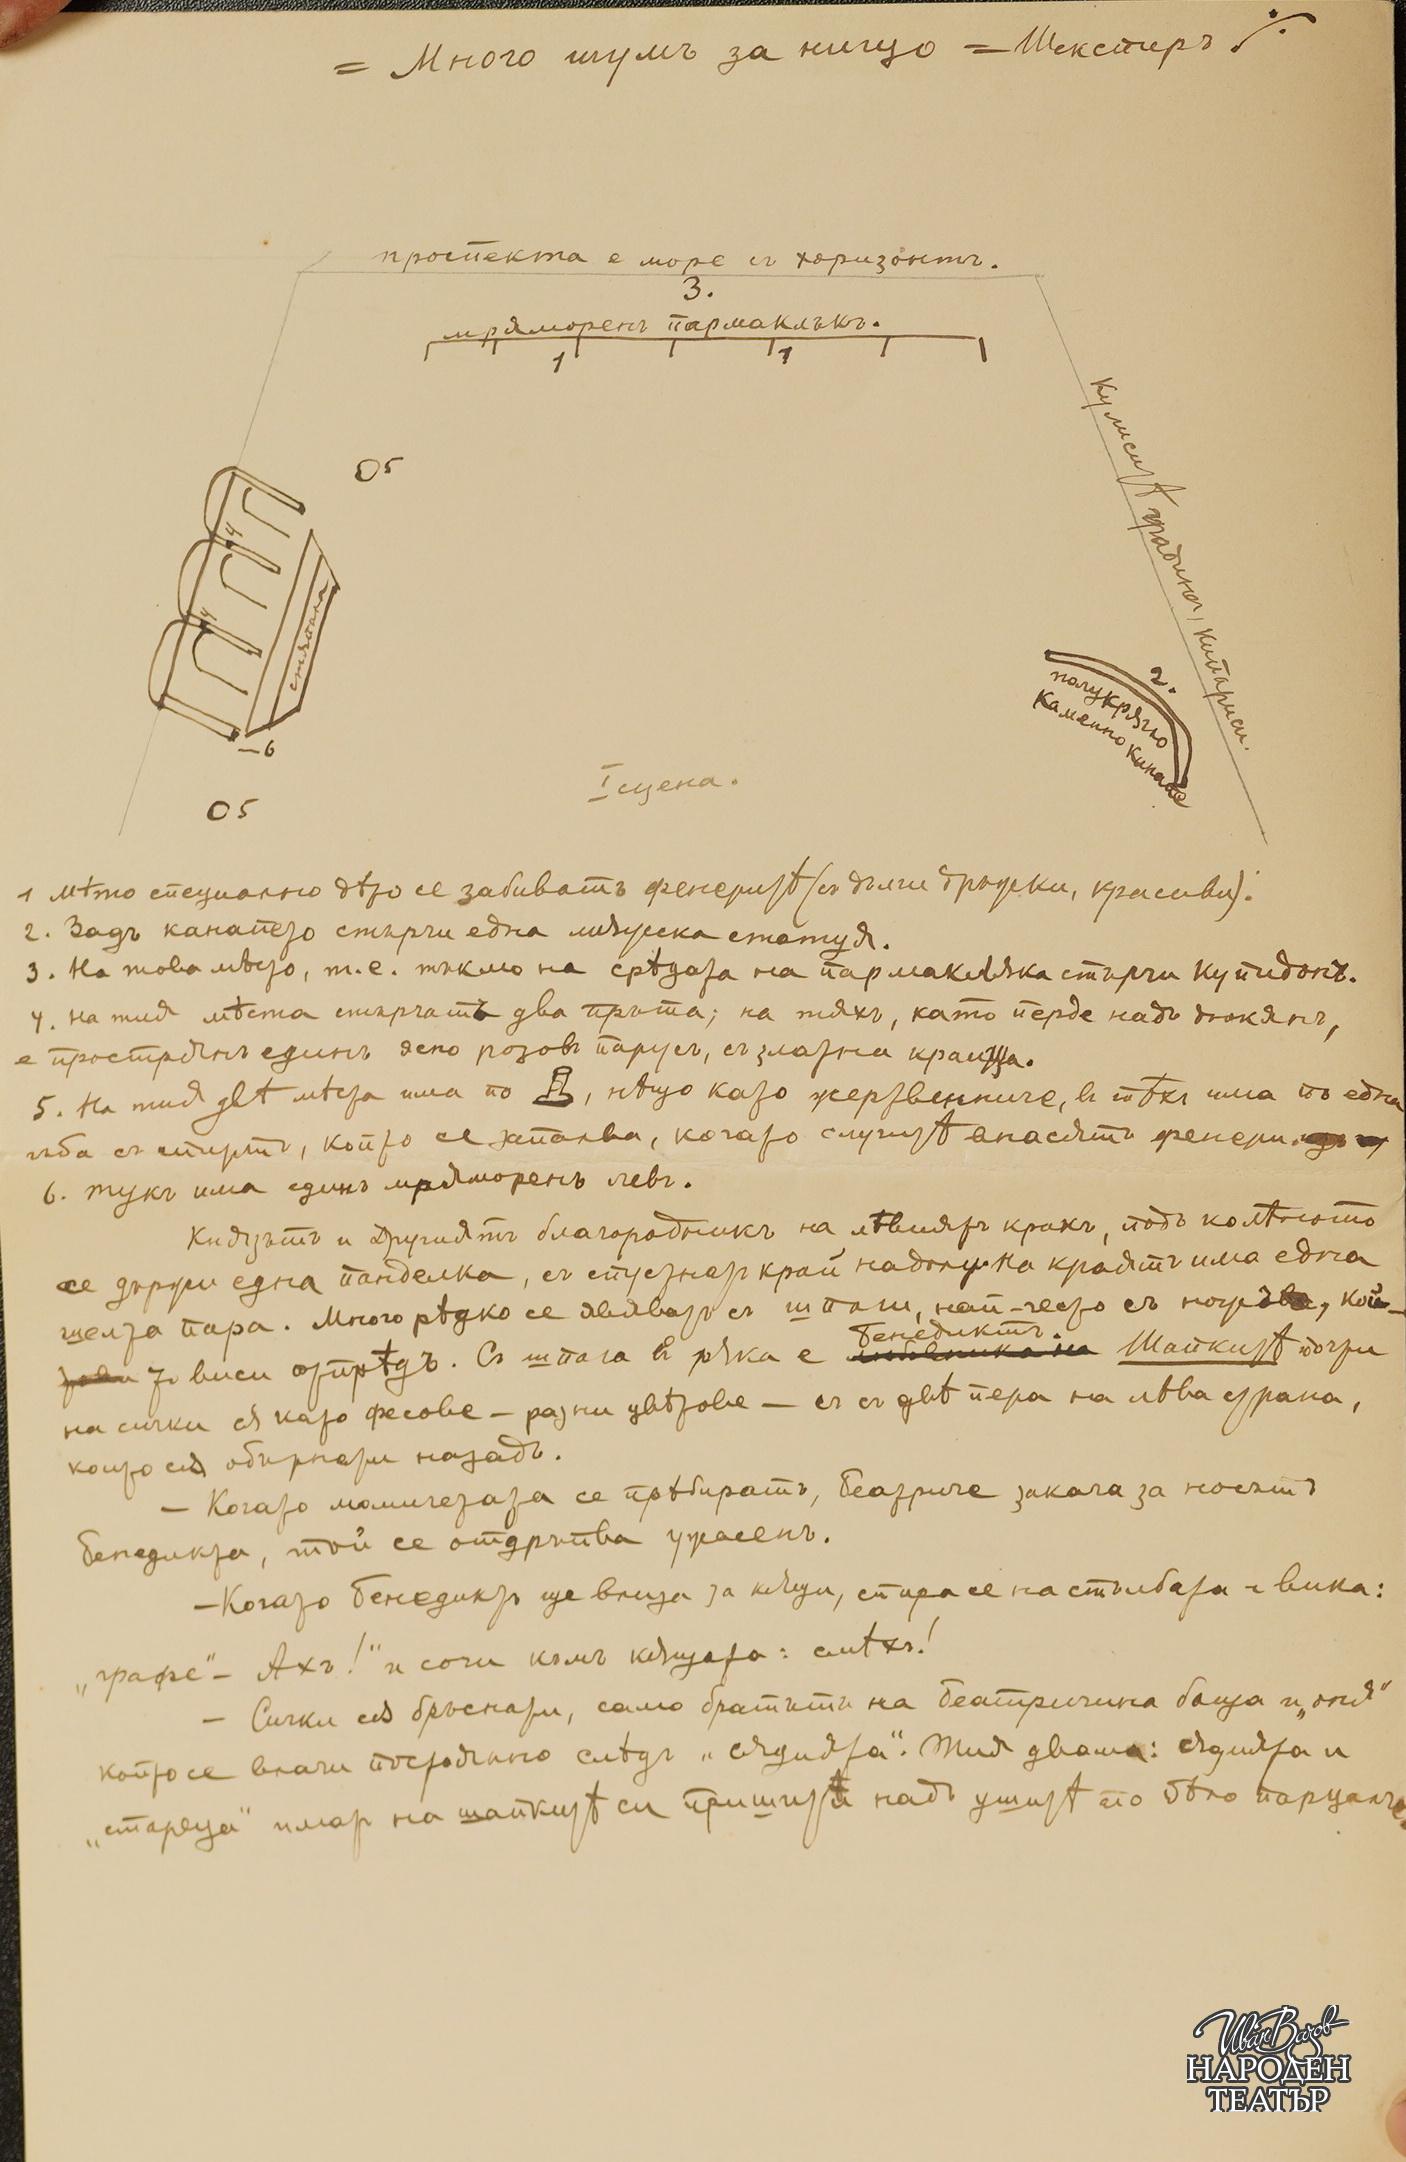 = Много шумъ за нищо = Шекспиръ ./.
проспекта е море съ хоризонтъ.
3.
мрѫморенъ пармаклъкъ.
1 1
Кулиситѣ градина, кипариси.
5
4
4
стѫпала
6
5
2.
полукрѫгло
каменно канапе
I сцена.
1 мѣто специално дѣто се забиватъ фенеритѣ (съ дълги дръжки, красиви).
2. Задъ канапето стърчи една мѫжска статуя.
3. На това мѣсто, т.е. тъкмо на срѣдата на пармаклѫка стърчи Купидонъ.
4. на тия мѣста стърчатъ два прѫта; на тяхъ, като перде надъ дюкянъ,
е прострѣнъ единъ ясно розовъ парусъ, съ златни краища.
5. На тия двѣ мѣста има по , нѣщо като жертвенниче, въ тѣхъ има по една
гѫба съ спиртъ, който се запалва, когато слугитѣ внасятъ фенери.
6. тукъ има единъ мрѫморенъ левъ.
Князътъ и Другиятъ благородникъ на лѣвиятъ кракъ, подъ колѣното
се държи една панделка, съ спуснатъ край надолу. На краятъ има една
желта пара. Много рѣдко се явяватъ съ шпаги, най-често съ
виси отпрѣдъ. Съ шпага въ рѫка е Бенедиктъ. Шапкитѣ почти
на сички сѫ като фесове – разни цвѣтове – съ съ двѣ пера на лѣва страна,
които сѫ обърнати назадъ.
– Когато момичетата се прѣбиратъ, Беатриче закача за носътъ
Бенедикта, той се отдръпва ужасенъ.
– Когато Бенедиктъ ще влиза за кѫщи, спира се на стълбата и вика:
„графе" – Ахъ!" и сочи къмъ кѫщата: смѣхъ!
– Сички сѫ бръснати, само братътъ на Беатричина баща и „оня"
който се влачи постоянно слѣдъ „сѫдията". Тия двама: сѫдията и
„стареца" иматъ на шапкитѣ си пришити надъ ушитѣ по бѣло парцалче.
Иван Вазов
НАРОДЕН
ТЕАТЪР